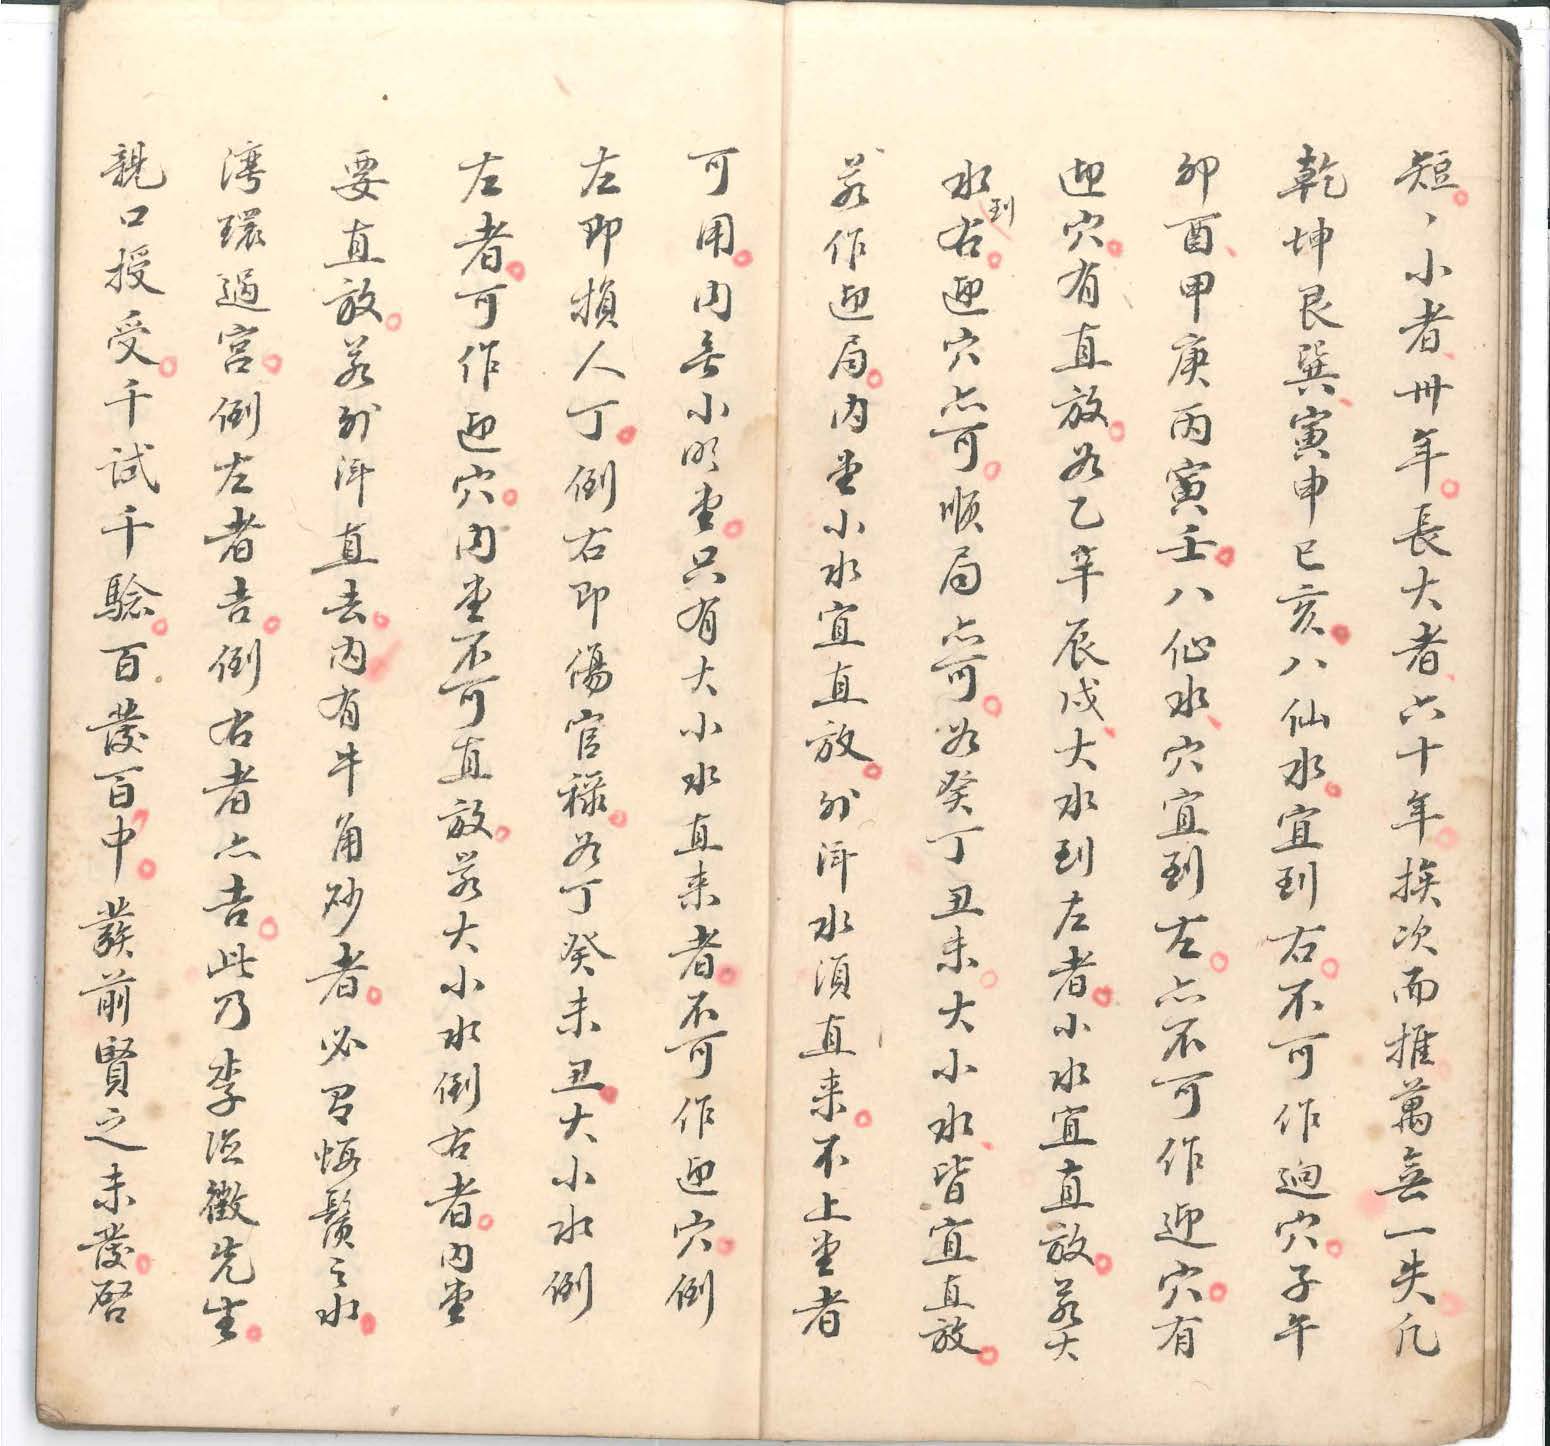 短、小者卅年長大者六十年挨次而推萬無一失凡
乾坤艮巽寅申巳亥八仙水宜到右不可作迎穴子午
卯酉甲庚丙寅壬八仙水穴宜到左亦不可作迎穴有
迎穴有直放如乙辛辰戌大水到左者小水宜直放若大
水到右迎穴亦可順局亦可如癸丁丑未大小水皆宜直放
若作迎局內堂小水宜直放外洋水須直来不上堂者
可用內無小明堂只有大小水直来者不可作迎穴倒
左即損人丁倒右即傷官祿如丁癸未丑大小水倒
左者可作迎穴內堂不可直放若大小水倒右者內堂
要直放若外洋直去內有牛角砂者必有蝦鬚之水
湾環過宮倒左者吉倒右者亦吉此乃李徵先生
親口授受千試千驗百發百中發前賢之未發啓